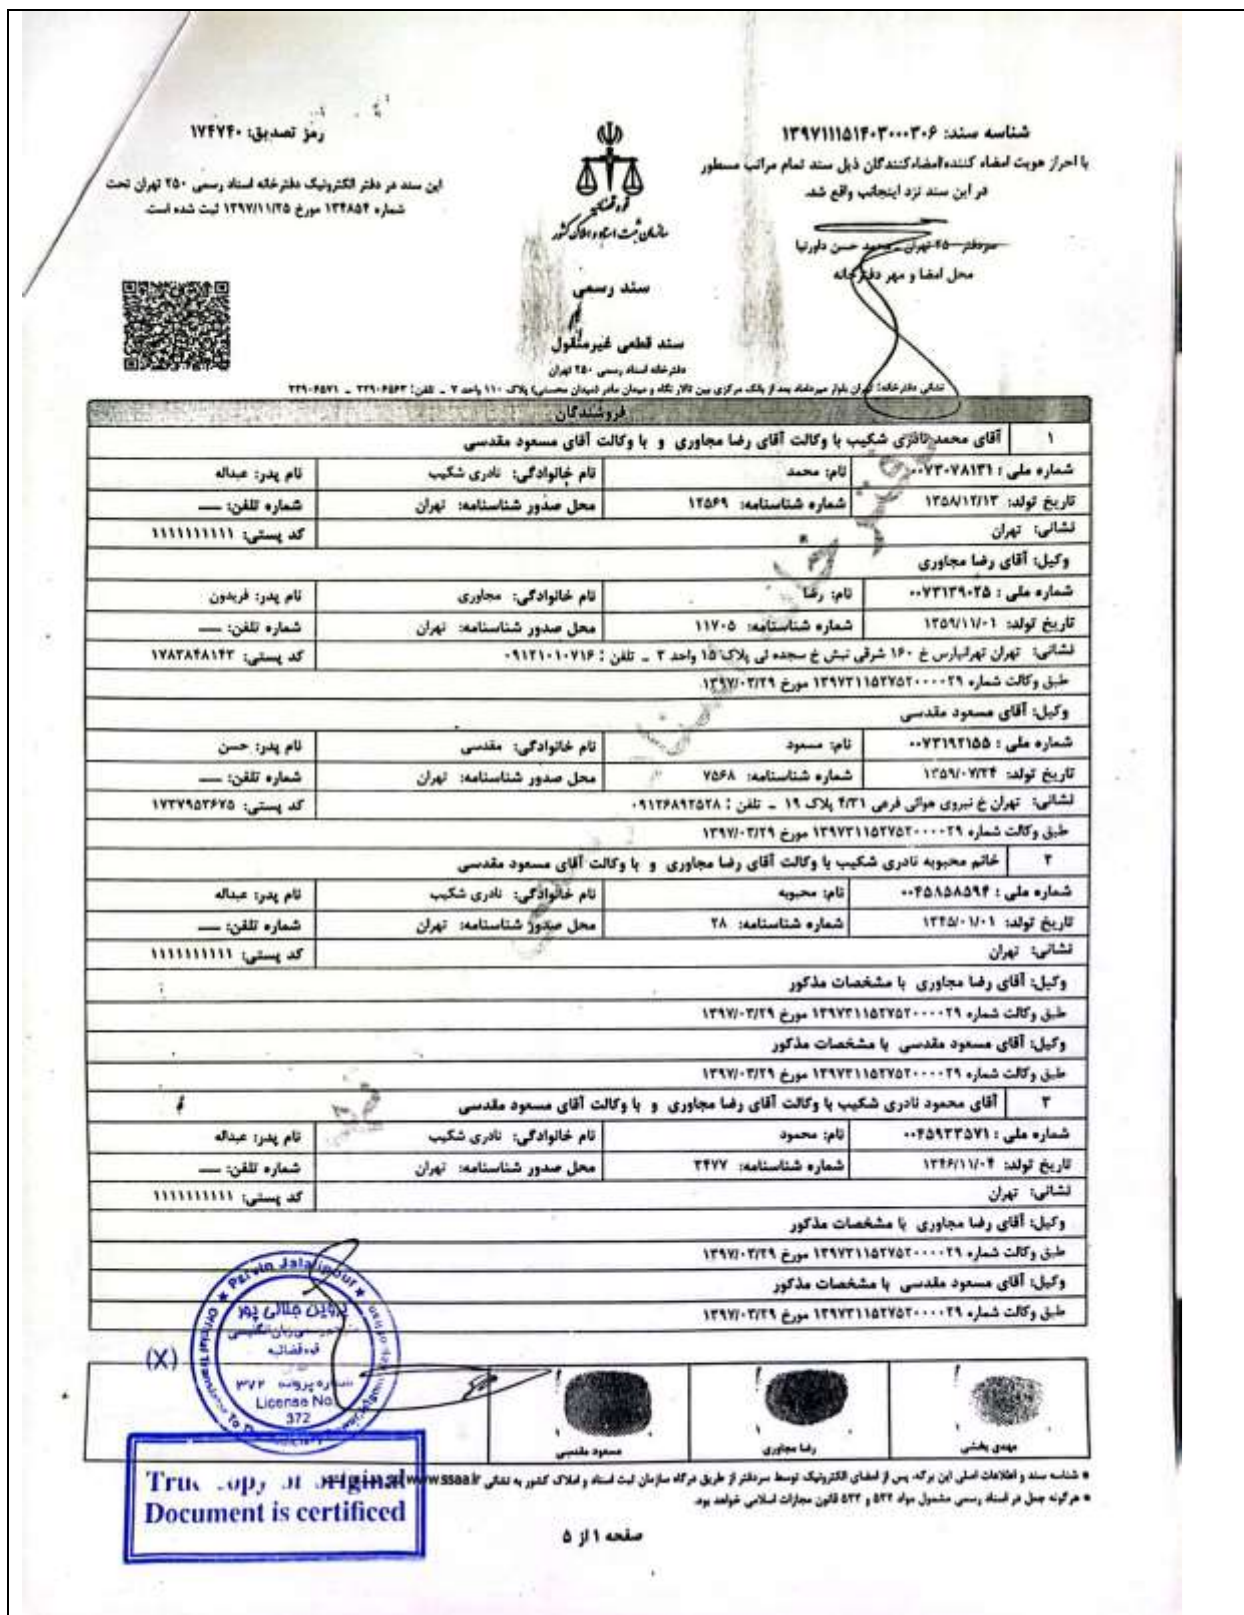 شناسه سند: ۱۳۹۷۱۱۱۵۱۴۰۳۰۰۰۳۰۶
با احراز هویت امضاء کننده/امضاءکنندگان ذیل سند تمام مراتب مسطور
در این سند نزد اینجانب واقع شد.
سردفتر ۲۵۰ تهران - محمد حسن داورنیا
محل امضا و مهر دفترخانه
قوه قضائیه
سازمان ثبت اسناد و املاک کشور
سند رسمی
سند قطعی غیرمنقول
دفترخانه اسناد رسمی ۲۵۰ تهران
رمز تصدیق: ۱۷۴۷۴۰
این سند در دفتر الکترونیک دفترخانه اسناد رسمی ۲۵۰ تهران تحت
شماره ۱۳۴۸۵۴ مورخ ۱۳۹۷/۱۱/۲۵ ثبت شده است.
نشانی دفترخانه: تهران بلوار میرداماد بعد از بانک مرکزی بین تالار نگاه و میدان مادر (میدان محسنی) پلاک ۱۱۰ واحد ۳ ـ تلفن: ۲۲۹۰۶۵۶۳ ـ ۲۲۹۰۶۵۷۱
فروشندگان
۱ آقای محمد نادری شکیب با وکالت آقای رضا مجاوری و با وکالت آقای مسعود مقدسی
شماره ملی : ۰۰۷۳۰۷۸۱۳۱ نام: محمد نام خانوادگی: نادری شکیب نام پدر: عبداله
تاریخ تولد: ۱۳۵۸/۱۲/۱۳ شماره شناسنامه: ۱۲۵۶۹ محل صدور شناسنامه: تهران شماره تلفن: ---
نشانی: تهران کد پستی: ۱۱۱۱۱۱۱۱۱۱
وکیل: آقای رضا مجاوری
شماره ملی : ۰۰۷۳۱۳۹۰۲۵ نام: رضا نام خانوادگی: مجاوری نام پدر: فریدون
تاریخ تولد: ۱۳۵۹/۱۱/۰۱ شماره شناسنامه: ۱۱۷۰۵ محل صدور شناسنامه: تهران شماره تلفن: ---
نشانی: تهران تهرانپارس خ ۱۶۰ شرقی نبش خ سجده ئی پلاک ۱۵ واحد ۳ ـ تلفن : ۰۹۱۲۱۰۱۰۷۱۶ کد پستی: ۱۷۸۳۸۴۸۱۴۳
طبق وکالت شماره ۱۳۹۷۳۱۱۵۲۷۵۲۰۰۰۰۲۹ مورخ ۱۳۹۷/۰۳/۲۹
وکیل: آقای مسعود مقدسی
شماره ملی : ۰۰۷۳۱۹۲۱۵۵ نام: مسعود نام خانوادگی: مقدسی نام پدر: حسن
تاریخ تولد: ۱۳۵۹/۰۷/۲۴ شماره شناسنامه: ۷۵۶۸ محل صدور شناسنامه: تهران شماره تلفن: ---
نشانی: تهران خ نیروی هوائی فرعی ۴/۳۱ پلاک ۱۹ ـ تلفن : ۰۹۱۲۶۸۹۲۵۲۸ کد پستی: ۱۷۳۷۹۵۳۶۷۵
طبق وکالت شماره ۱۳۹۷۳۱۱۵۲۷۵۲۰۰۰۰۲۹ مورخ ۱۳۹۷/۰۳/۲۹
۲ خانم محبوبه نادری شکیب با وکالت آقای رضا مجاوری و با وکالت آقای مسعود مقدسی
شماره ملی : ۰۰۴۵۸۵۸۵۹۴ نام: محبوبه نام خانوادگی: نادری شکیب نام پدر: عبداله
تاریخ تولد: ۱۳۴۵/۰۱/۰۱ شماره شناسنامه: ۲۸ محل صدور شناسنامه: تهران شماره تلفن: ---
نشانی: تهران کد پستی: ۱۱۱۱۱۱۱۱۱۱
وکیل: آقای رضا مجاوری با مشخصات مذکور
طبق وکالت شماره ۱۳۹۷۳۱۱۵۲۷۵۲۰۰۰۰۲۹ مورخ ۱۳۹۷/۰۳/۲۹
وکیل: آقای مسعود مقدسی با مشخصات مذکور
طبق وکالت شماره ۱۳۹۷۳۱۱۵۲۷۵۲۰۰۰۰۲۹ مورخ ۱۳۹۷/۰۳/۲۹
۳ آقای محمود نادری شکیب با وکالت آقای رضا مجاوری و با وکالت آقای مسعود مقدسی
شماره ملی : ۰۰۴۵۹۳۳۵۷۱ نام: محمود نام خانوادگی: نادری شکیب نام پدر: عبداله
تاریخ تولد: ۱۳۴۶/۱۱/۰۴ شماره شناسنامه: ۲۴۷۷ محل صدور شناسنامه: تهران شماره تلفن: ---
نشانی: تهران کد پستی: ۱۱۱۱۱۱۱۱۱۱
وکیل: آقای رضا مجاوری با مشخصات مذکور
طبق وکالت شماره ۱۳۹۷۳۱۱۵۲۷۵۲۰۰۰۰۲۹ مورخ ۱۳۹۷/۰۳/۲۹
وکیل: آقای مسعود مقدسی با مشخصات مذکور
طبق وکالت شماره ۱۳۹۷۳۱۱۵۲۷۵۲۰۰۰۰۲۹ مورخ ۱۳۹۷/۰۳/۲۹
Parvin Jalalipour
پروین جلالی پور
قوه قضائیه
شماره پروانه ۳۷۲
License No
372
(X)
مهدی بخشی
رضا مجاوری
مسعود مقدسی
* شناسه سند و اطلاعات اصلی این برگه، پس از امضای الکترونیک توسط سردفتر از طریق درگاه سازمان ثبت اسناد و املاک کشور به نشانی www.ssaa.ir
* هرگونه جعل در اسناد رسمی مشمول مواد ۵۳۲ و ۵۳۳ قانون مجازات اسلامی خواهد بود.
True copy of original
Document is certificed
صفحه ۱ از ۵